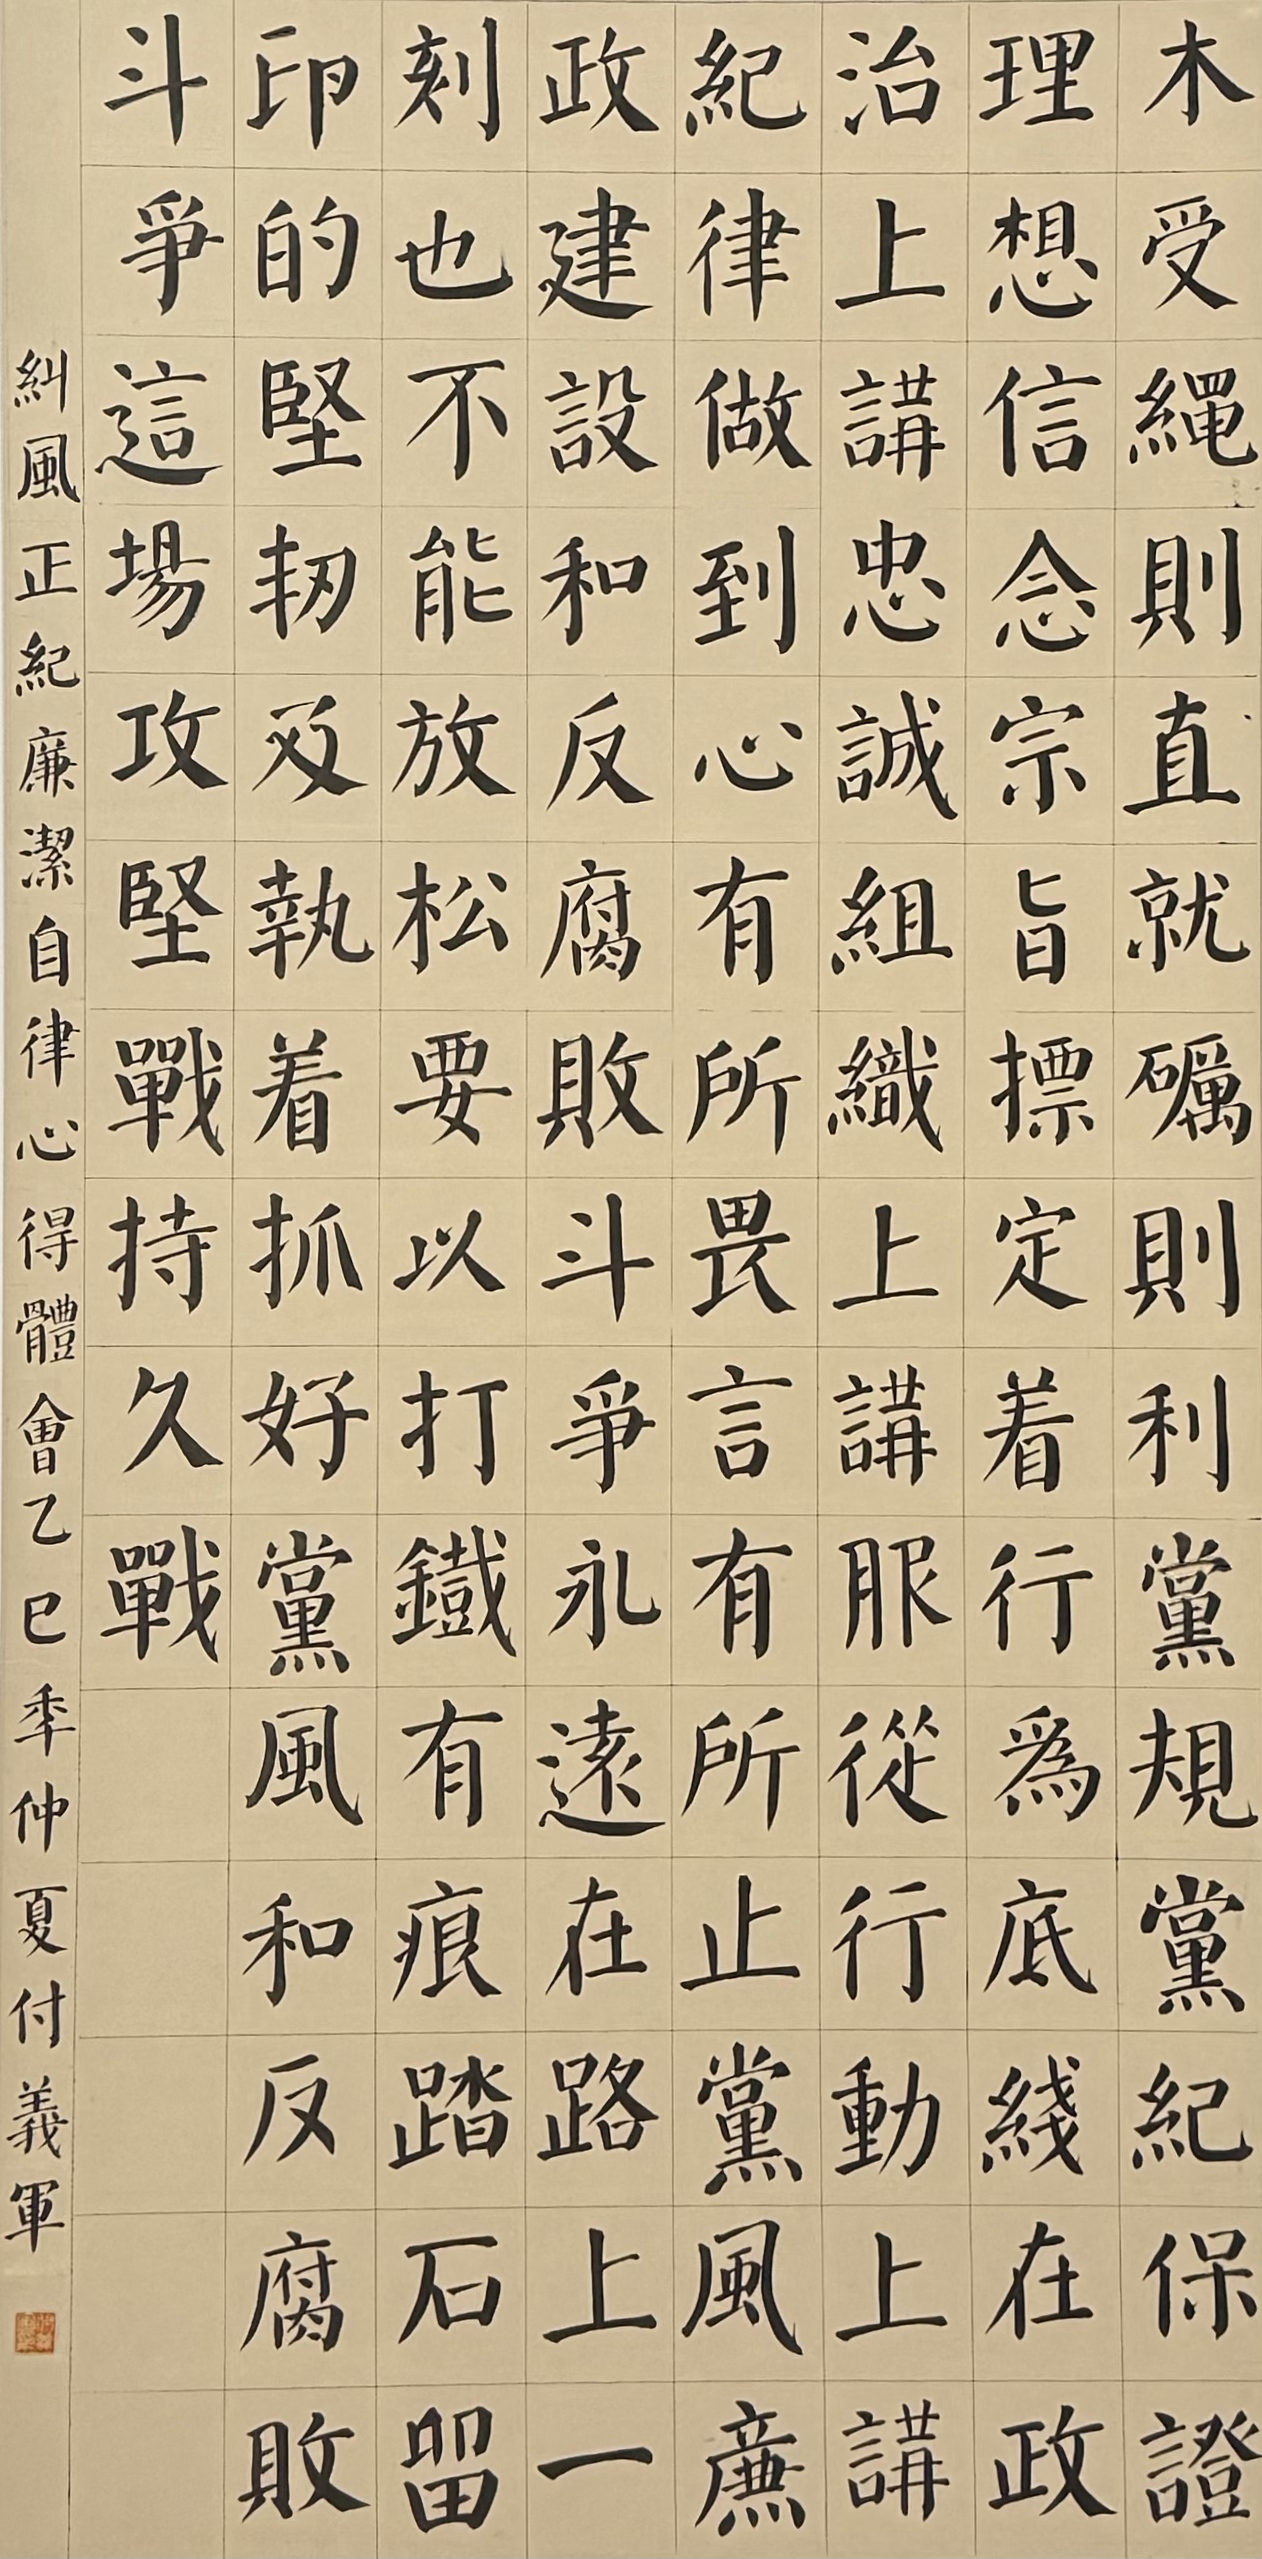 木受繩則直就礪則利黨規黨紀保證
理想信念宗旨標定着行爲底綫在政
治上講忠誠組織上講服從行動上講
紀律做到心有所畏言有所止黨風廉
政建設和反腐敗斗爭永遠在路上一
刻也不能放松要以打鐵有痕踏石留
印的堅韧及執着抓好黨風和反腐敗
斗爭這場攻堅戰持久戰
糾風正紀廉潔自律心得體會乙巳季仲夏付義軍